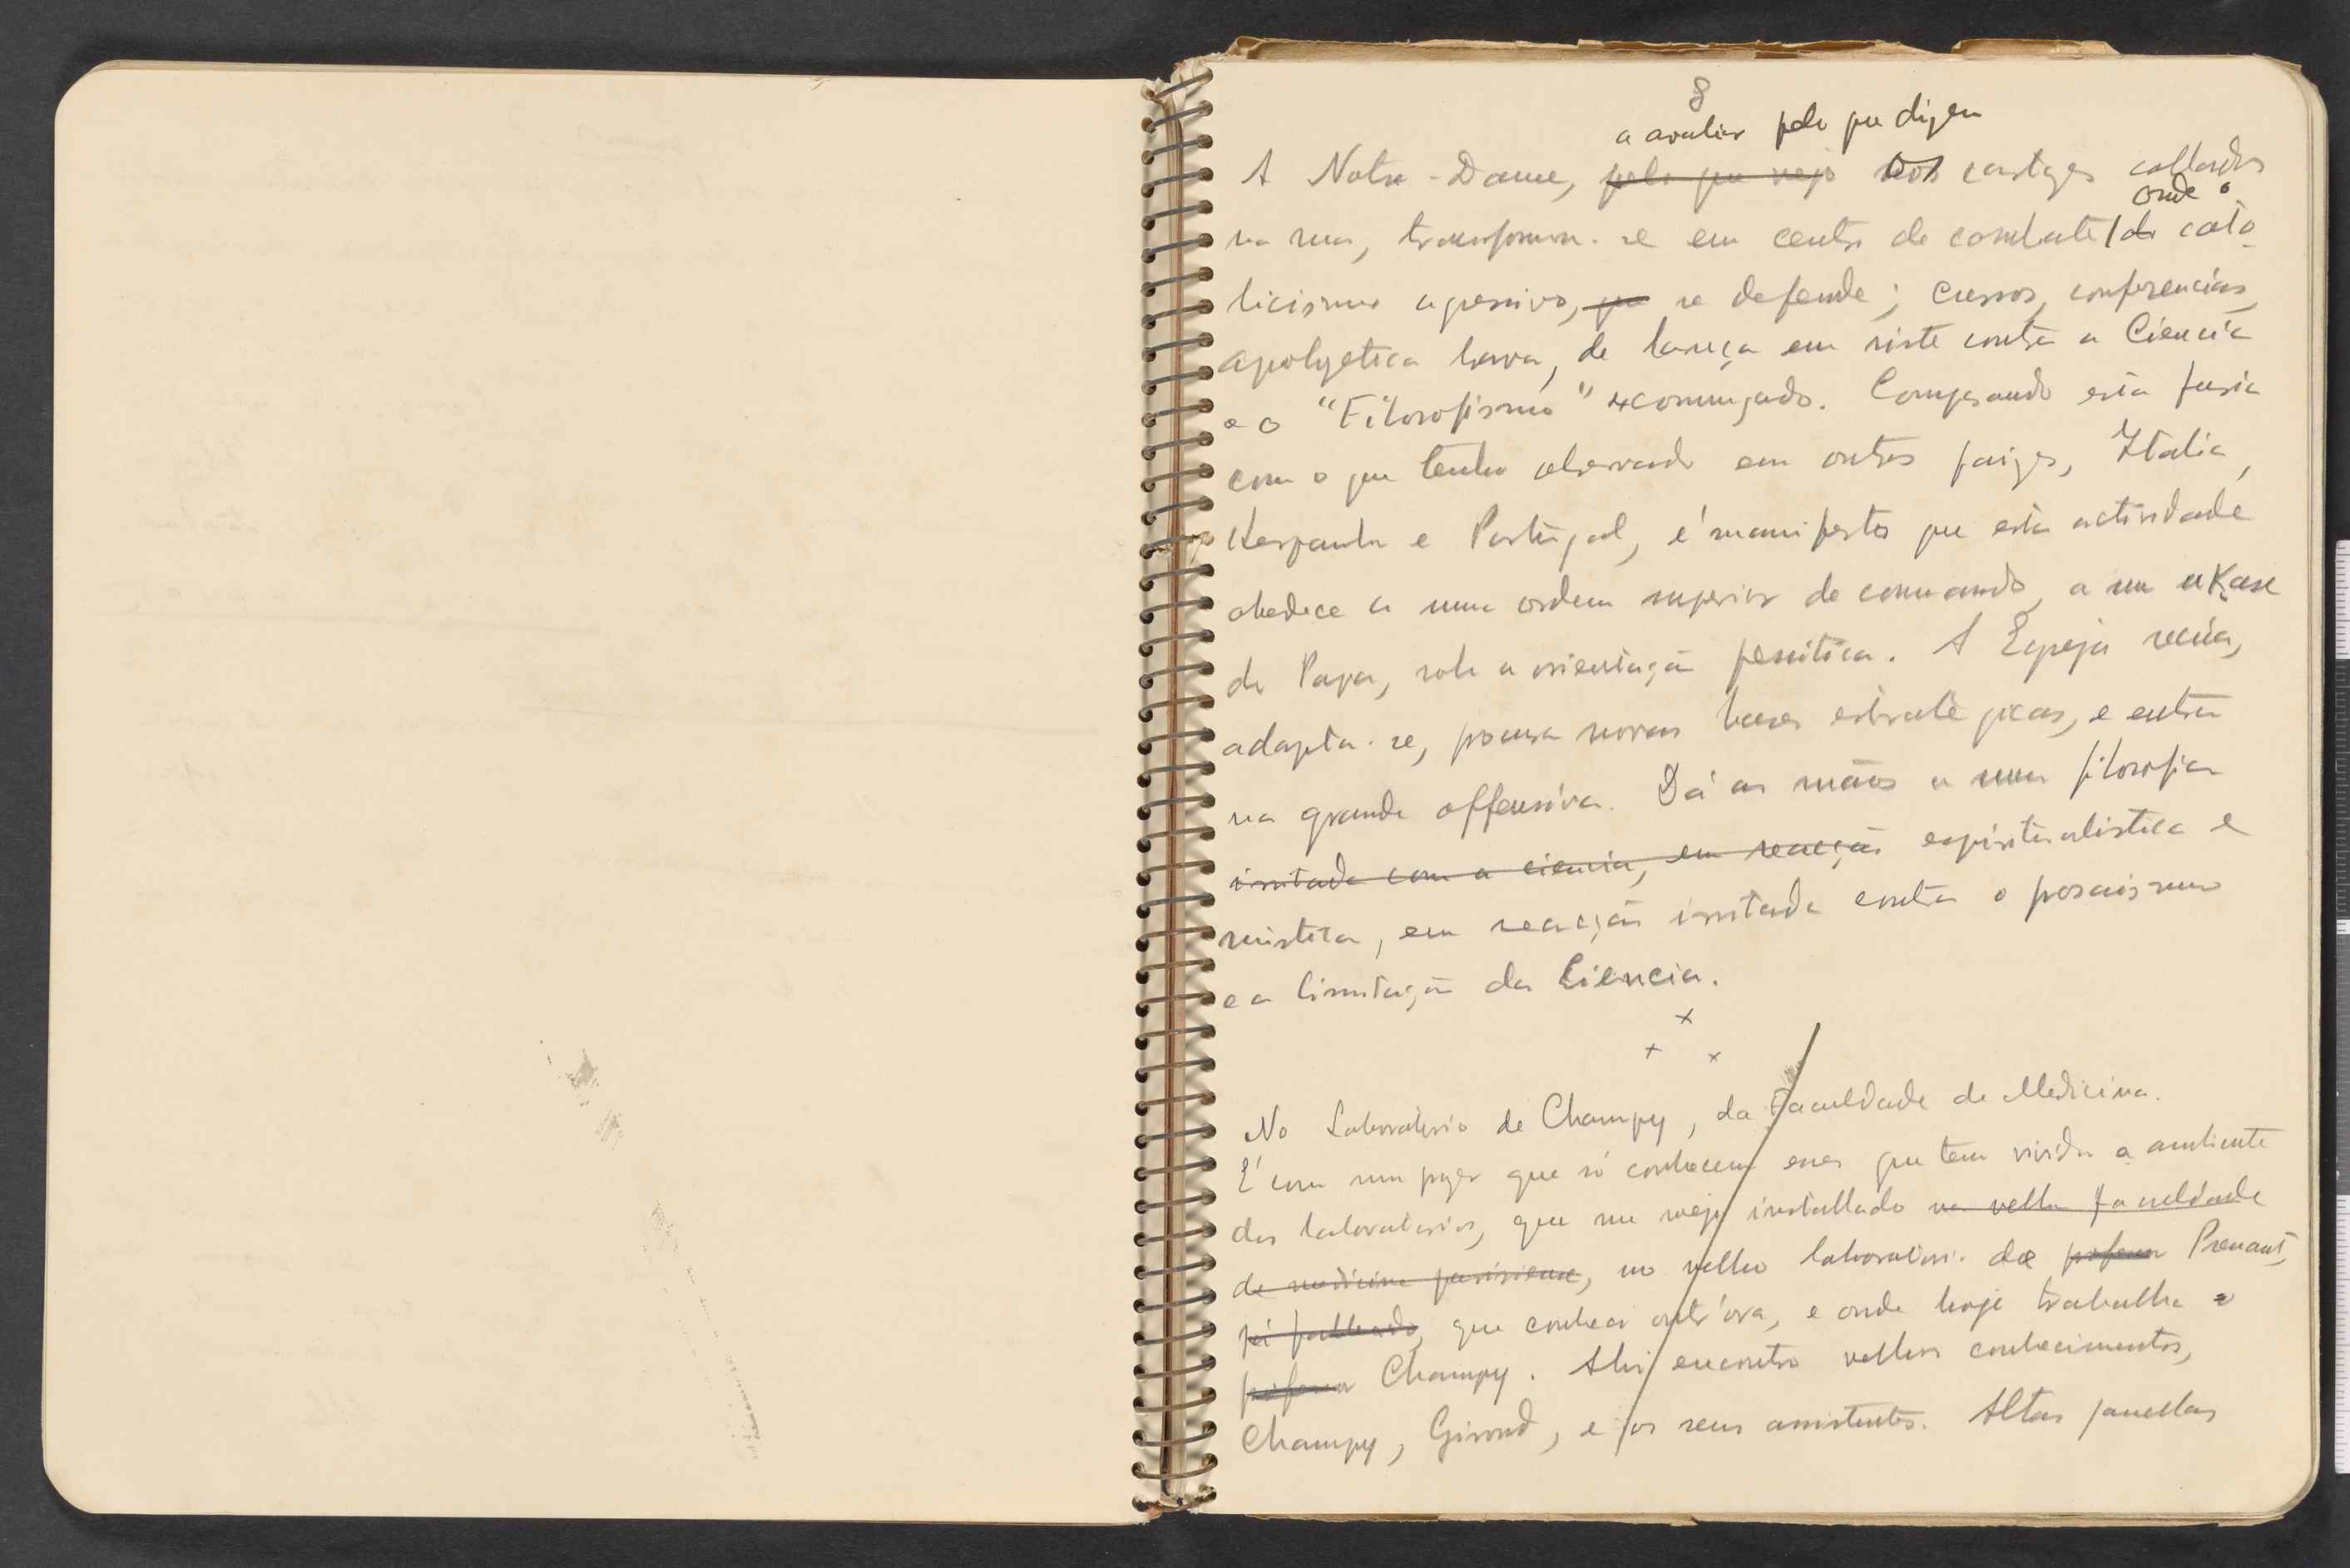 8
a avaliar pelo que dizem
A Notre-Dame, pelo que vejo nos cartazes collados
onde o
na rua, transformou-se em centro de combate do cato-
licismo agressivo, que se defende; cursos, conferencias,
apologetica brava, de lança em riste contra a Ciencia
e o "Filosofismo" excomungado. Comparando esta furia
com o que tenho observado em outros paizes, Italia,
Hespanha e Portugal, é manifesto que esta actividade
obedece a uma ordem superior de comando, a um ukase
do Papa, sob a orientação jesuitica. A Egreja recúa,
adapta-se, procura novas bases estrategicas, e entra
na grande offensiva. Dá as mãos a uma filosofia
irritada com a ciencia, em reacção espiritualistica e
mistica, em reacção irritada contra o prosaismo
e a limitação da Ciencia.
x
+ x
No Laboratorio de Champy, da Faculdade de Medicina.
É com um prazer que só conhecem esses que tem vivido o ambiente
dos laboratorios, que me vejo installado na velha faculdade
de medicina parisiense, no velho laboratorio de professor Prenant,
já fallecido, que conheci outr'ora, e onde hoje trabalha o
professor Champy. Ahi encontro velhos conhecimentos,
Champy, Giroud, e os seus assistentes. Altas janellas